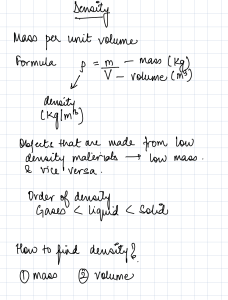 Density
Mass per unit volume
Formula ρ = m/V — mass (Kg)
— volume (m³)
density
(Kg/m³)
Objects that are made from low
density materials → low mass.
& vice versa.
Order of density
Gases < Liquid < Solid
How to find density?
① mass ② volume